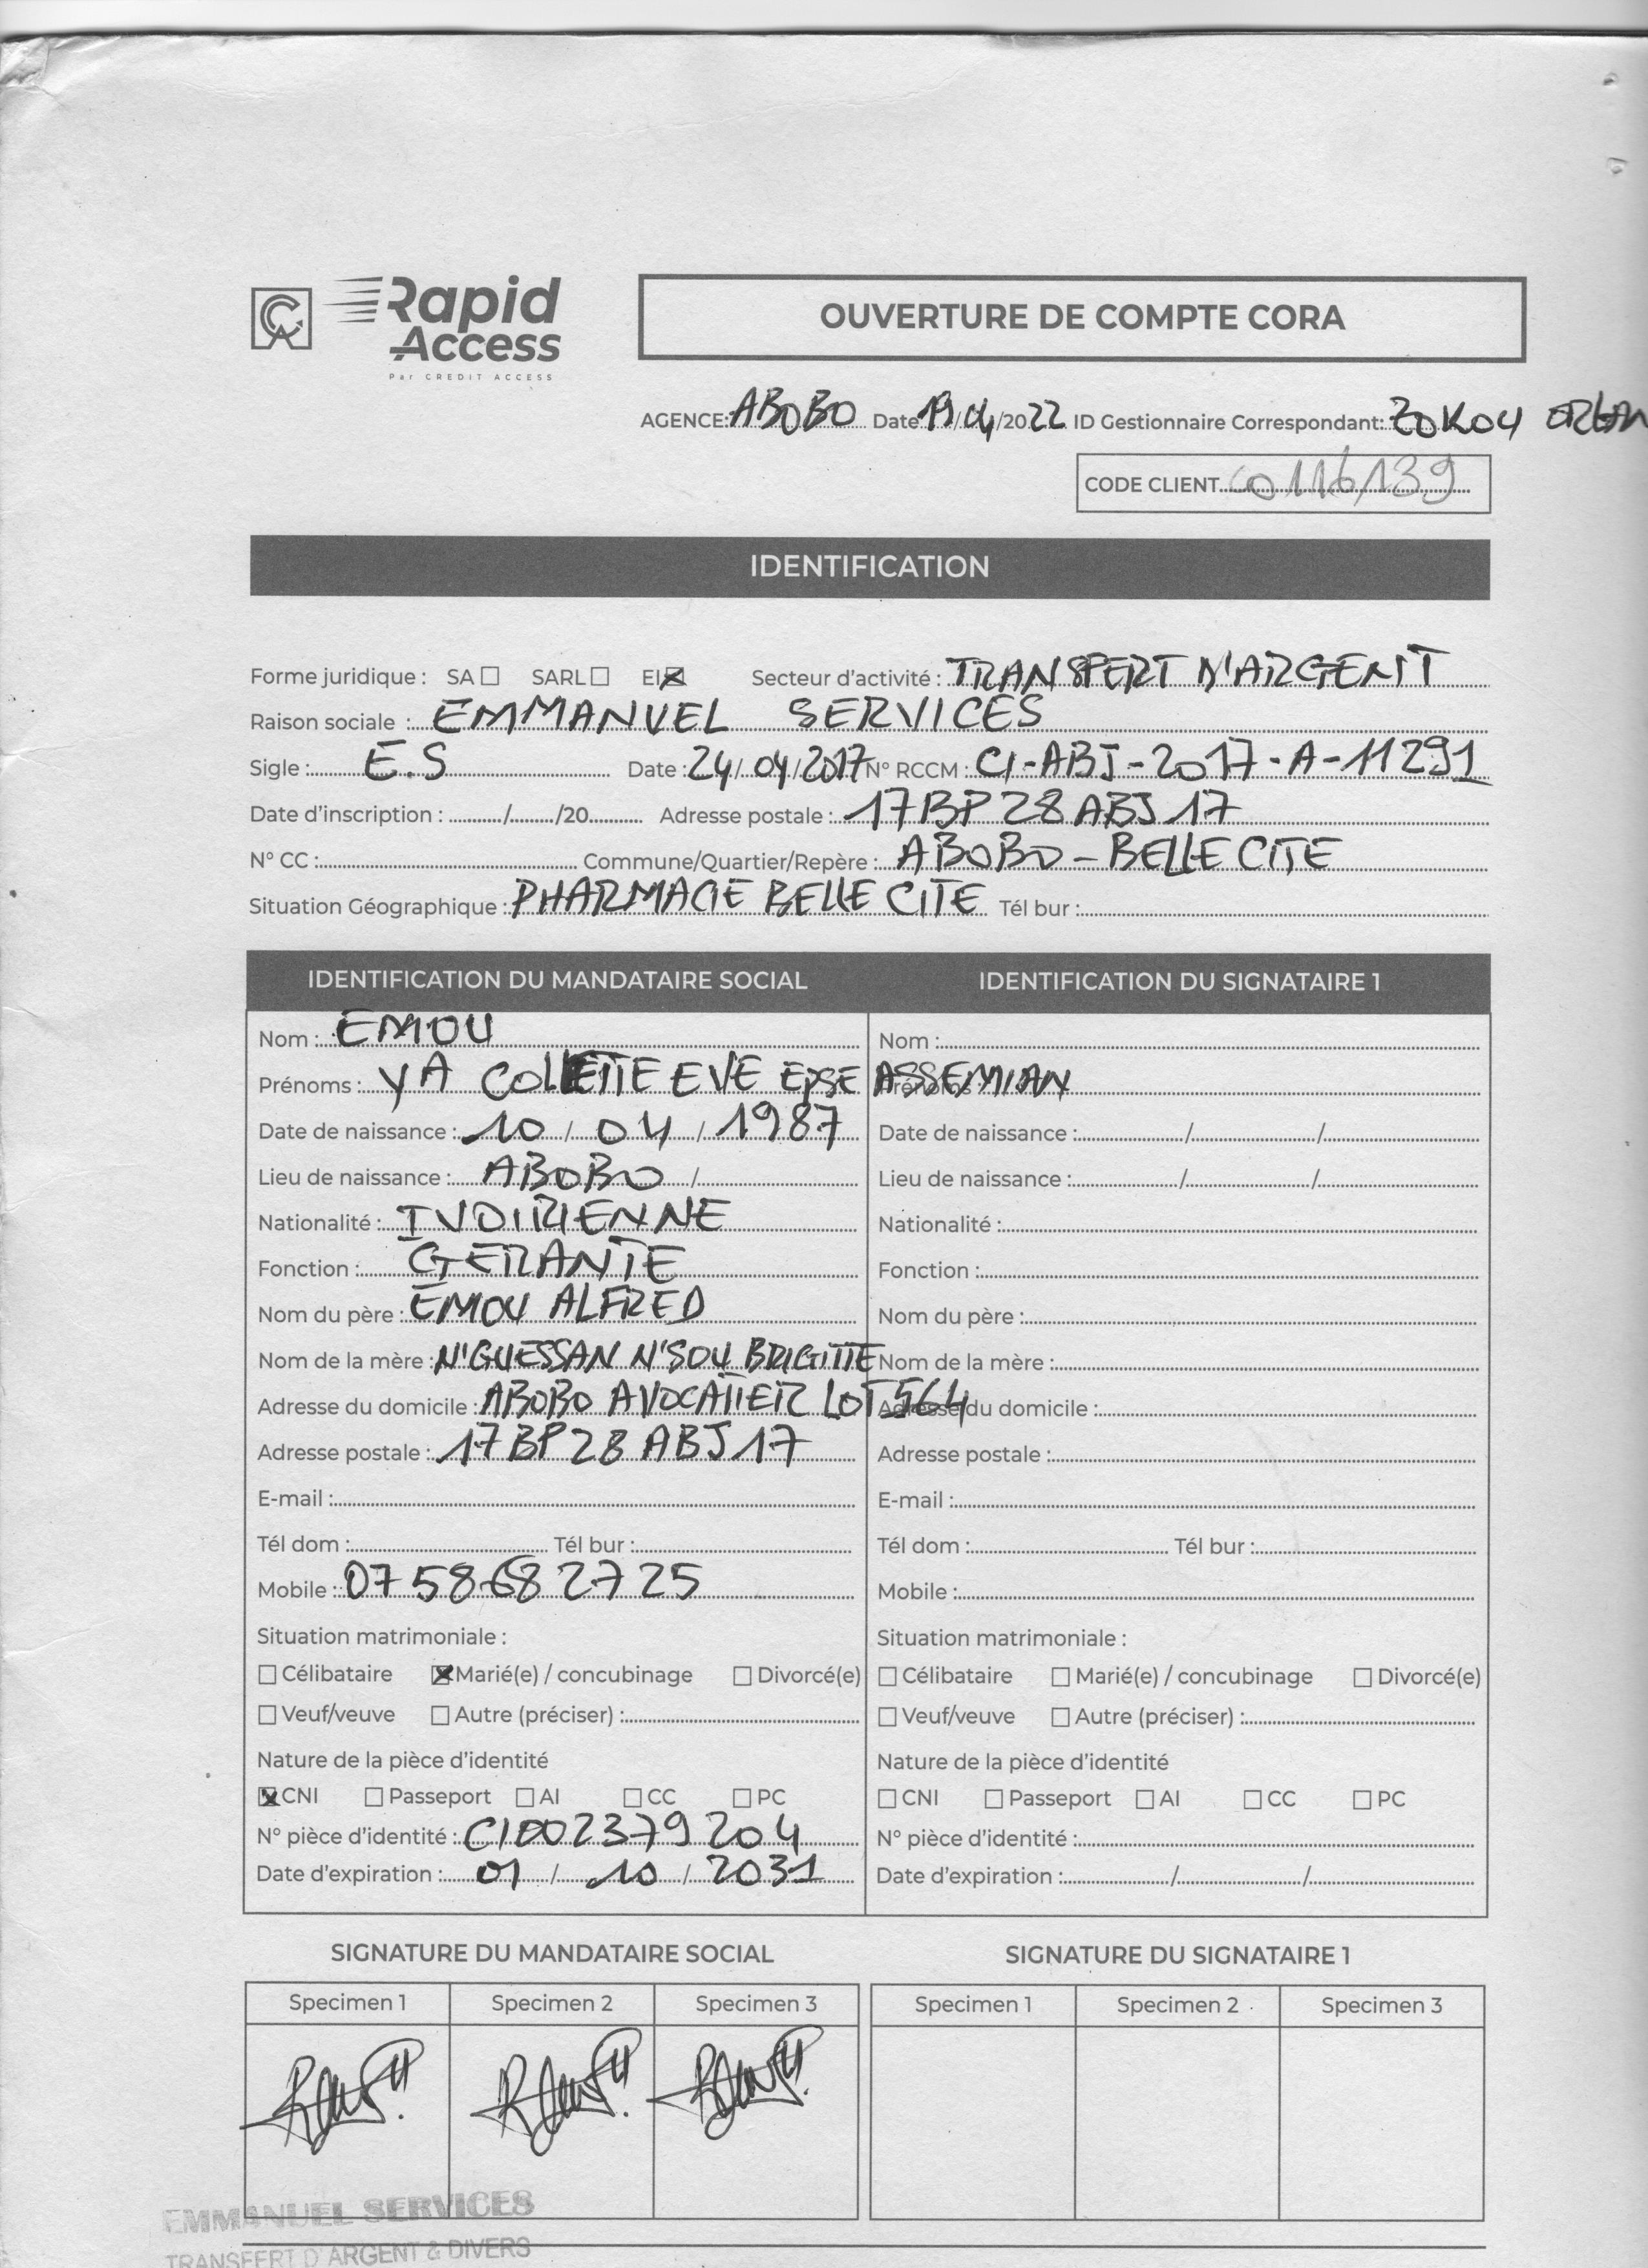 Rapid
Access
Par CREDIT ACCESS
OUVERTURE DE COMPTE CORA
AGENCE: ABOBO Date 19/04/2022 ID Gestionnaire Correspondant: ZOKOU
CODE CLIENT 00116139
IDENTIFICATION
Forme juridique : SA ☐ SARL ☐ EI ☒ Secteur d'activité : TRANSFERT D'ARGENT
Raison sociale : EMMANUEL SERVICES
Sigle : E.S Date : 24/04/2017 N° RCCM : CI-ABJ-2017-A-11291
Date d'inscription : ........../........./20........... Adresse postale : 17 BP 28 ABJ 17
N° CC : Commune/Quartier/Repère : ABOBO - BELLE CITE
Situation Géographique : PHARMACIE BELLE CITE Tél bur :
IDENTIFICATION DU MANDATAIRE SOCIAL
Nom : EMOU
Prénoms : YA COLETTE EVE EPSE ASSEMIAN
Date de naissance : 10 / 04 / 1987
Lieu de naissance : ABOBO /
Nationalité : IVOIRIENNE
Fonction : GERANTE
Nom du père : EMOU ALFRED
Nom de la mère : N'GUESSAN N'SOU BRIGITTE
Adresse du domicile : ABOBO AVOCATIER LOT 564
Adresse postale : 17 BP 28 ABJ 17
E-mail :
Tél dom : Tél bur :
Mobile : 07 58 68 27 25
Situation matrimoniale :
☐ Célibataire ☒ Marié(e) / concubinage ☐ Divorcé(e)
☐ Veuf/veuve ☐ Autre (préciser) :
Nature de la pièce d'identité
☒ CNI ☐ Passeport ☐ AI ☐ CC ☐ PC
N° pièce d'identité : CI002379204
Date d'expiration : 01 / 10 / 2031
IDENTIFICATION DU SIGNATAIRE 1
Nom :
Prénoms :
Date de naissance : / /
Lieu de naissance : / /
Nationalité :
Fonction :
Nom du père :
Nom de la mère :
Adresse du domicile :
Adresse postale :
E-mail :
Tél dom : Tél bur :
Mobile :
Situation matrimoniale :
☐ Célibataire ☐ Marié(e) / concubinage ☐ Divorcé(e)
☐ Veuf/veuve ☐ Autre (préciser) :
Nature de la pièce d'identité
☐ CNI ☐ Passeport ☐ AI ☐ CC ☐ PC
N° pièce d'identité :
Date d'expiration : / /
SIGNATURE DU MANDATAIRE SOCIAL
Specimen 1 Specimen 2 Specimen 3
SIGNATURE DU SIGNATAIRE 1
Specimen 1 Specimen 2 Specimen 3
EMMANUEL SERVICES
TRANSFERT D'ARGENT & DIVERS